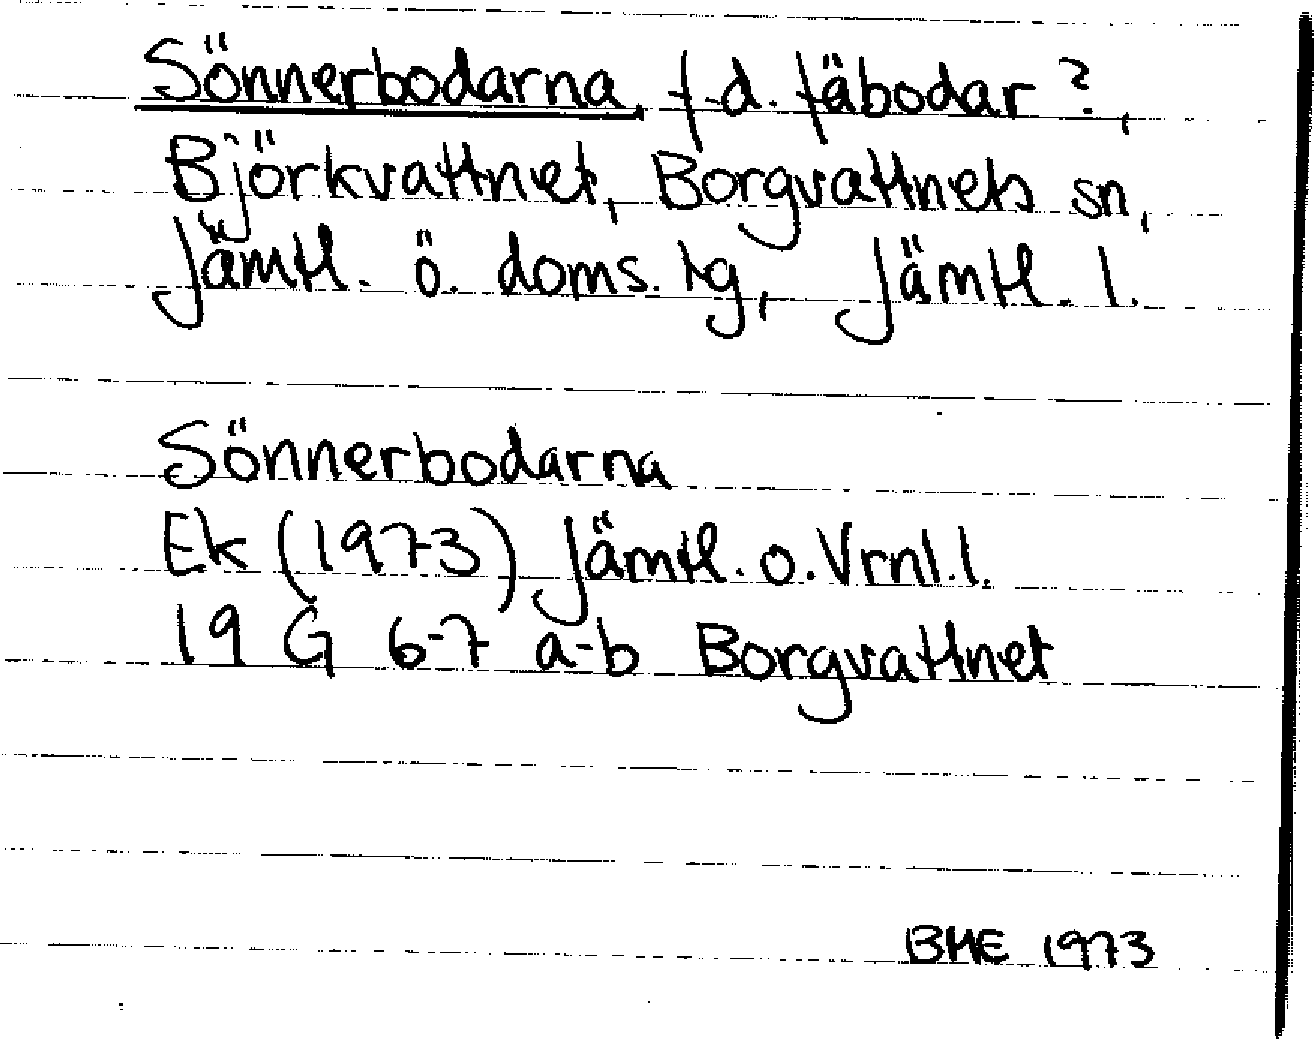 Sönnerbodarna, f.d. fäbodar?,
Björkvattnet, Borgvattnets sn,
Jämtl. ö. doms. tg, Jämtl. l.
Sönnerbodarna
Ek (1973) Jämtl. o. Vrnl. l.
19 G 6-7 a-b Borgvattnet
BME 1973